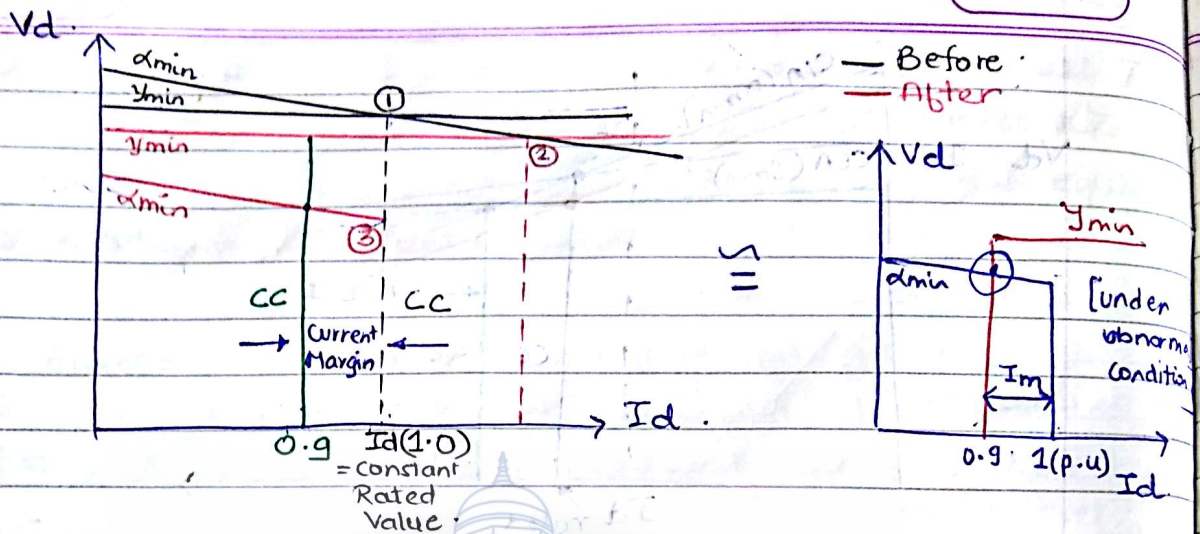 Vd.
αmin
γmin
①
γmin
②
αmin
③
CC
CC
Current
Margin
Id.
0.9
Id(1.0)
= Constant
Rated
Value.
— Before
— After
≅
Vd
γmin
αmin
[under
abnorm
Condition
Im
0.9 1(p.u)
Id